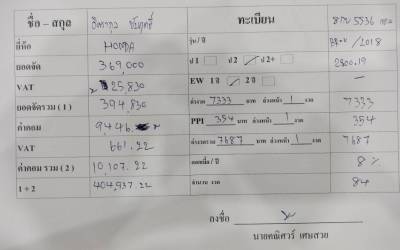 ชื่อ – สกุล ทะเบียน 5536
ยี่ห้อ HONDA รุ่น / ปี / 2018
ยอดจัด 369,000 ป 1 ป 2 ป 2+ 2800.19
VAT 25,830 EW 1 ปี 2 ปี —
ยอดจัดรวม ( 1 ) 394,830 ค่างวด 7333 บาท ล่วงหน้า 1 งวด 7333
ค่าคอม 9,446. PPI 354 บาท ล่วงหน้า 1 งวด 354
VAT 661.22 ค่างวดรวม 7687 บาท ล่วงหน้า 1 งวด 7687
ค่าคอม รวม ( 2 ) 10,107.22 ดอกเบี้ย / ปี 8 %
1 + 2 404,937.22 จำนวน งวด 84
ลงชื่อ
นายคณิศวร์ เศษสวย